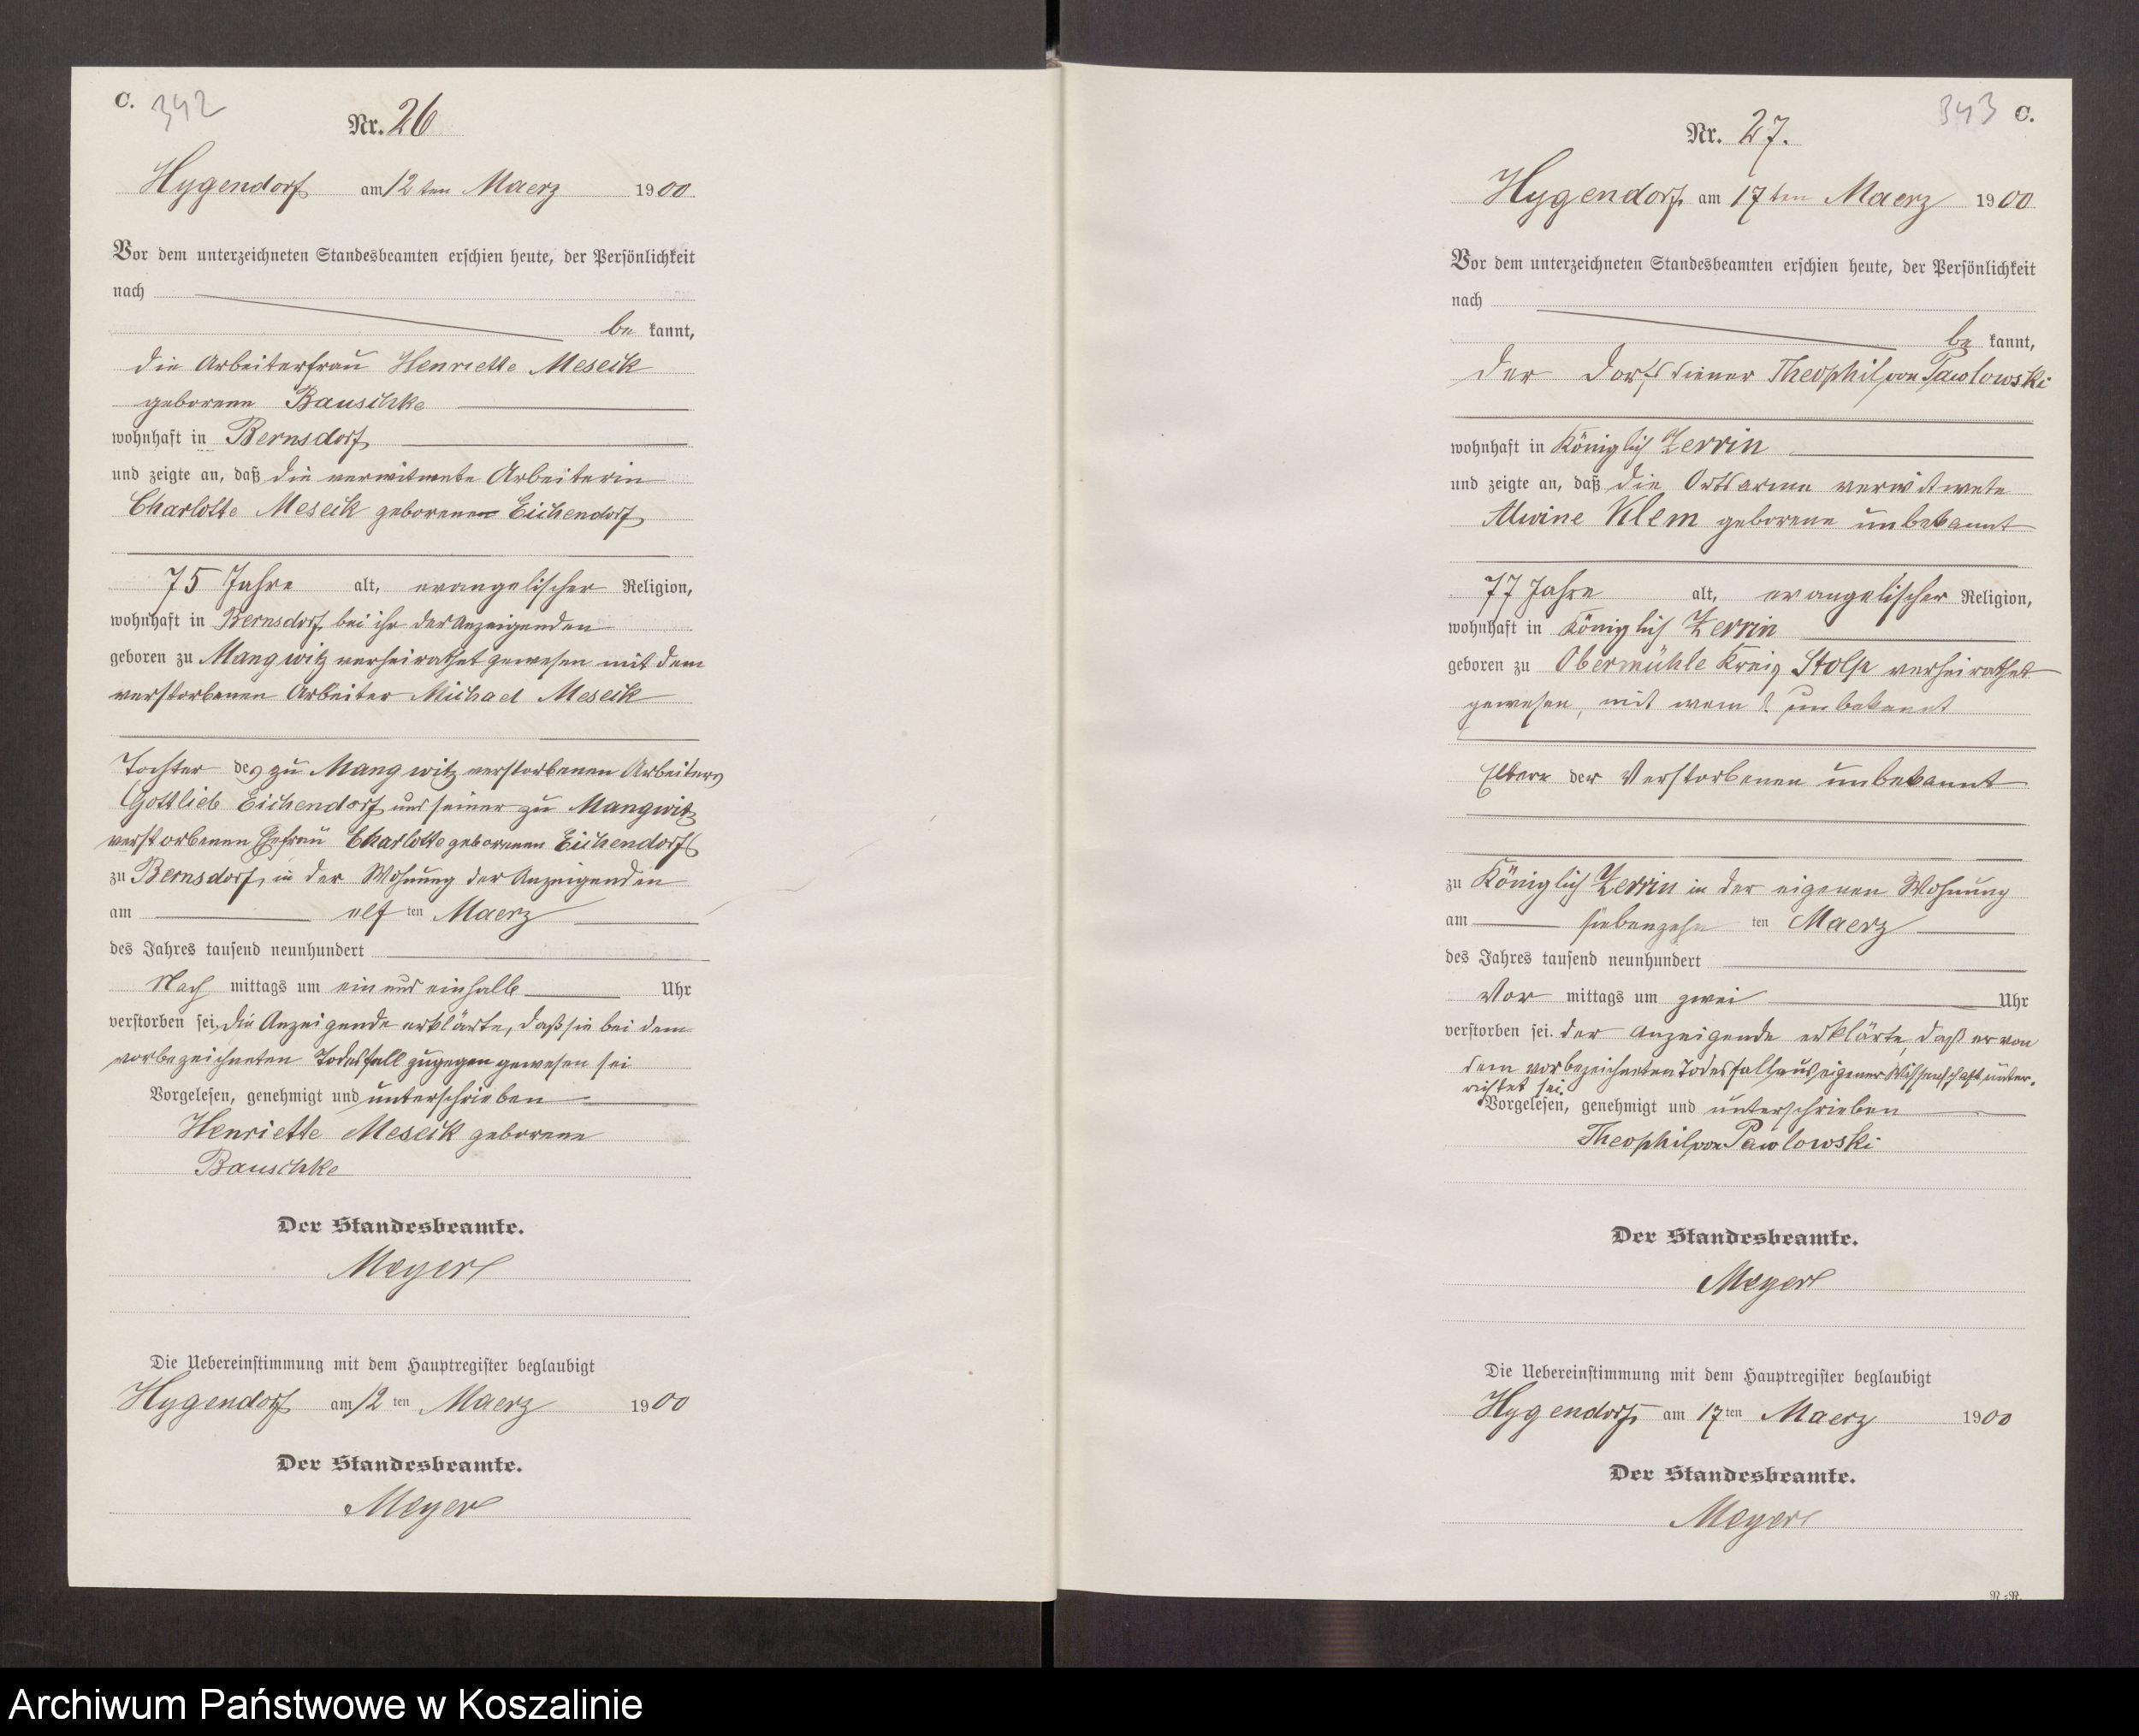 C. 342
Nr. 26
Hygendorf am 12 ten Maerz 1900
Vor dem unterzeichneten Standesbeamten erschien heute, der Persönlichkeit
nach
be kannt,
die Arbeiterfrau Henriette Meseck
geborene Bauschke
wohnhaft in Bernsdorf
und zeigte an, daß die verwitwete Arbeiterin
Charlotte Meseck geborene Eichendorf
75 Jahre alt, evangelischer Religion,
wohnhaft in Bernsdorf, bei ihr der Anzeigenden
geboren zu Mangwitz verheirathet gewesen mit dem
verstorbenen Arbeiter Michael Meseck
Tochter des zu Mangwitz verstorbenen Arbeiters
Gottlieb Eichendorf und seiner zu Mangwitz
verstorbenen Ehefrau Charlotte geborenen Eichendorf
zu Bernsdorf, in der Wohnung der Anzeigenden
am elf ten Maerz
des Jahres tausend neunhundert
Nach mittags um ein und einhalb Uhr
verstorben sei, die Anzeigende erklärte, daß sie bei dem
vorbezeichneten Todesfall zugegen gewesen sei
Vorgelesen, genehmigt und unterschrieben
Henriette Meseck geborene
Bauschke
Der Standesbeamte.
Meyer
Die Uebereinstimmung mit dem Hauptregister beglaubigt
Hygendorf am 12 ten Maerz 1900
Der Standesbeamte.
Meyer
343 C.
Nr. 27.
Hygendorf, am 17 ten Maerz 1900
Vor dem unterzeichneten Standesbeamten erschien heute, der Persönlichkeit
nach
be kannt,
der Dorfsdiener Theophil von Pawlowski
wohnhaft in Königlich Zerrin
und zeigte an, daß die Ortsarme verwitwete
Alwine Klem geborene unbekannt
77 Jahre alt, evangelischer Religion,
wohnhaft in Königlich Zerrin
geboren zu Obermühle Kreis Stolp verheirathet
gewesen, mit wem? unbekannt
Eltern der Verstorbenen unbekannt
zu Königlich Zerrin in der eigenen Wohnung
am siebenzehn ten Maerz
des Jahres tausend neunhundert
Vor mittags um zwei Uhr
verstorben sei. der Anzeigende erklärte, daß er von
dem vorbezeichneten Todesfall aus eigener Wissenschaft unter-
richtet sei.
Vorgelesen, genehmigt und unterschrieben
Theophil von Pawlowski
Der Standesbeamte.
Meyer
Die Uebereinstimmung mit dem Hauptregister beglaubigt
Hygendorf, am 17 ten Maerz 1900
Der Standesbeamte.
Meyer
R.=R.
Archiwum Państwowe w Koszalinie